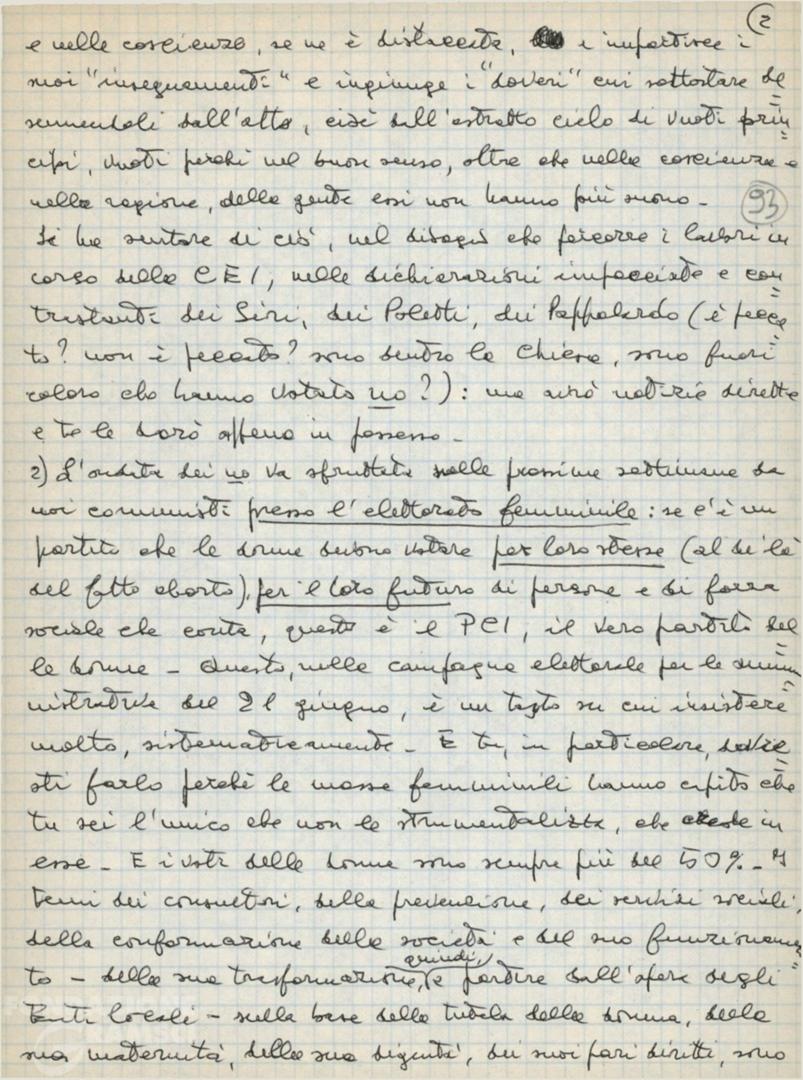 2
e nelle coscienze, se ne è distaccata, e impartisce i
suoi "insegnamenti" e ingiunge i "doveri" cui sottostare de=
sumendoli dall'alto, cioè dall'astratto cielo di vuoti prin=
cipi, vuoti perché nel buon senso, oltre che nella coscienza e
nella ragione, della gente essi non hanno più suono -
93
Si ha sentore di ciò, nel disagio che percorre i lavori in
corso della CEI, nelle dichiarazioni impacciate e con=
trastanti dei Siri, dei Poletti, dei Pappalardo (è pecca=
to? non è peccato? sono dentro la Chiesa, sono fuori
coloro che hanno votato no?): ma avrò notizie dirette
e te le darò appena in possesso -
2) L'ondata dei no va sfruttata nelle prossime settimane da
noi comunisti presso l'elettorato femminile: se c'è un
partito che le donne devono votare per loro stesse (al di là
del fatto aborto), per il loro futuro di persone e di forza
sociale che conta, questo è il PCI, il vero partito del
le donne - Questo, nella campagna elettorale per le ammi=
nistrative del 21 giugno, è un tasto su cui insistere
molto, sistematicamente - E tu, in particolare, dovre=
sti farlo perché le masse femminili hanno capito che
tu sei l'unico che non le strumentalizza, che crede in
esse - E i voti delle donne sono sempre più del 50% - I
temi dei consultori, della prevenzione, dei servizi sociali,
della conformazione della società e del suo funzionamen=
to - della sua trasformazione, quindi, (e partire dall'opera degli
Enti locali - sulla base della tutela della donna, della
sua maternità, della sua dignità, dei suoi pari diritti, sono